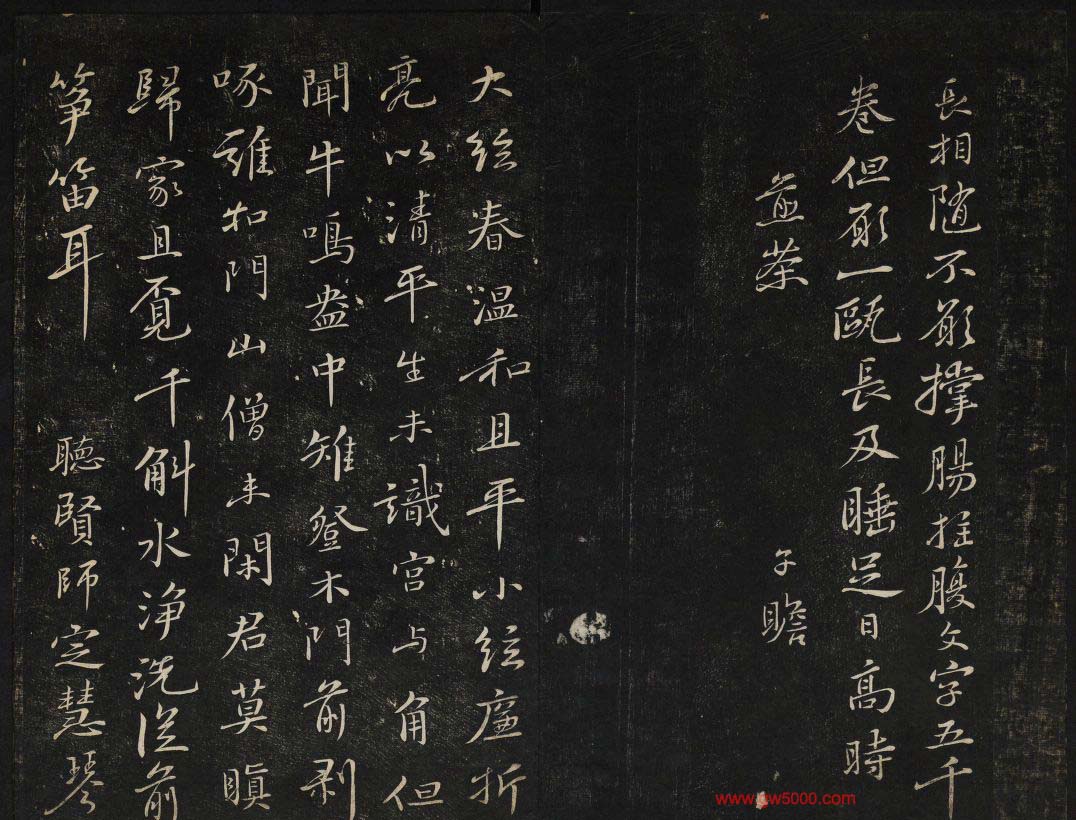 長相随不願撑腸拄腹文字五千
卷但願一甌長及睡足日高時
煎茶
子瞻
大絃春温和且平小絃廉折
亮以清平生未識宫与角但
聞牛鳴盎中雉登木門前剥
啄誰扣門山僧未閑君莫瞋
歸家且覔千斛水浄洗從前
筝笛耳
聽賢師定慧琴